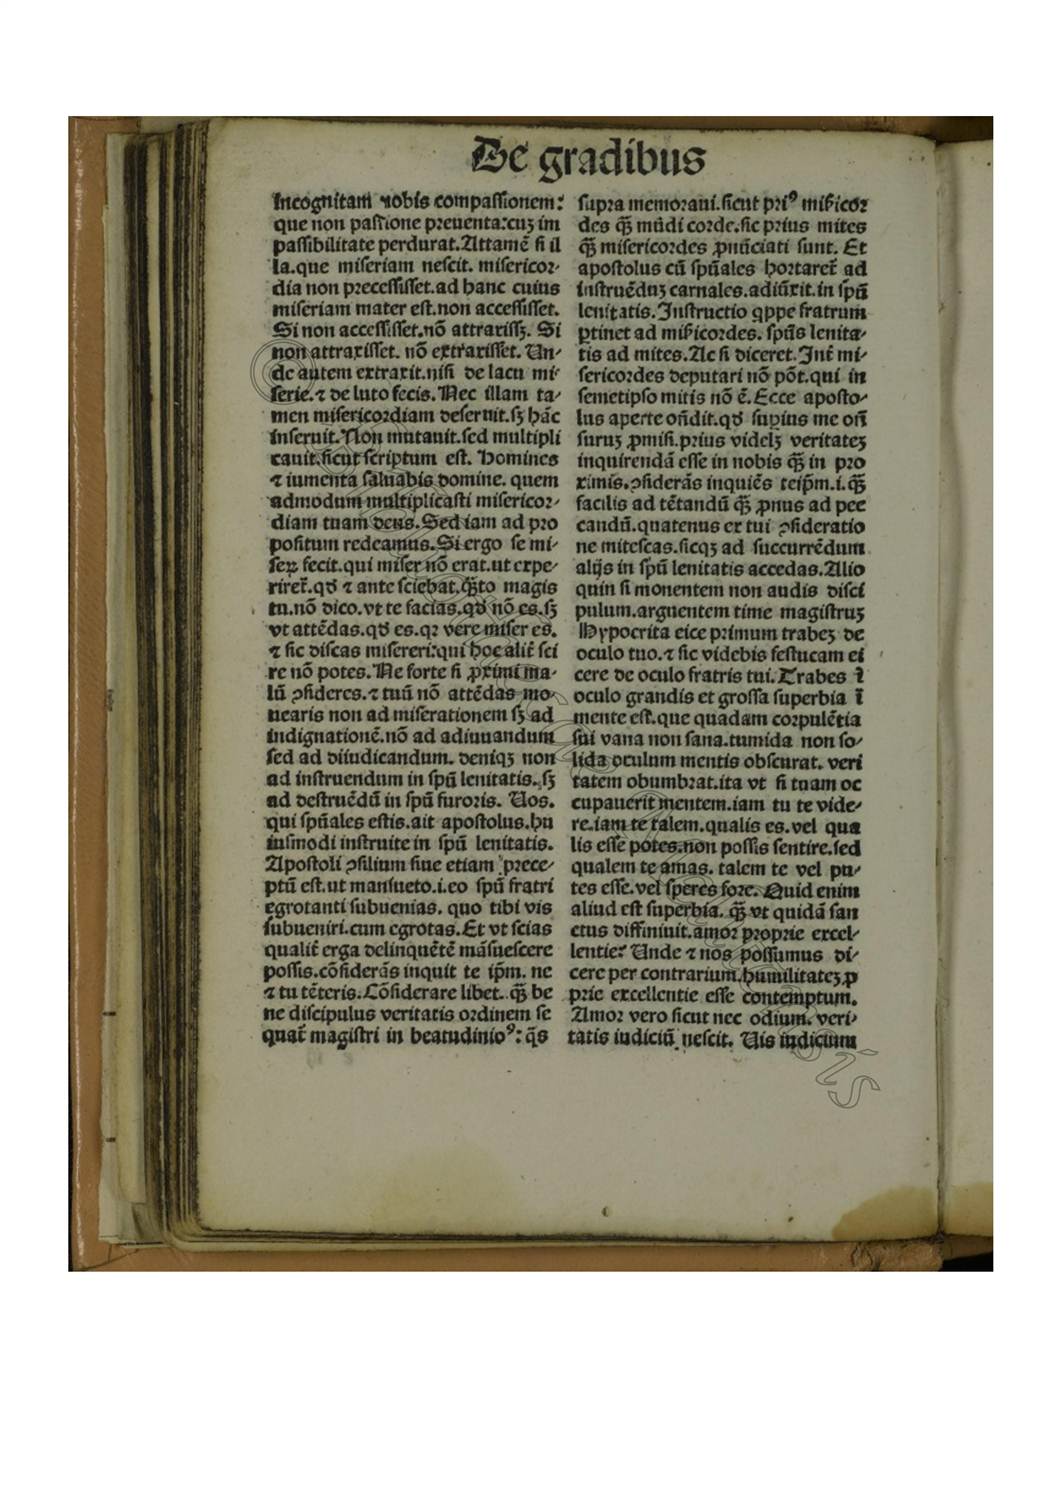 De gradibus
incognitam nobis compassionem:
que non passione preuenta:cuȝ im
passibilitate perdurat.Attamē si il
la.que miseriam nescit. misericor-
dia non precessisset.ad hanc cuius
miseriam mater est.non accessisset.
Si non accessisset.nō attraxissȝ. Si
non attraxisset. nō extraxisset. Un-
de autem extraxit.nisi de lacu mi-
serie.⁊ de luto fecis. Nec illam ta-
men misericordiam deseruit.sȝ hāc
inseruit. Non mutauit.sed multipli
cauit.sicut scriptum est. Homines
⁊ iumenta saluabis domine. quem
admodum multiplicasti misericor-
diam tuam deus. Sed iam ad pro
positum redeamus. Si ergo se mi-
seꝝ fecit.qui miser nō erat.ut expe-
riret̄.qđ ⁊ ante sciebat.q̄ȝto magis
tu.nō dico.vt te facias.qđ nō es.sȝ
vt attēdas.qđ es.qꝛ vere miser es.
⁊ sic discas misereri:qui hoc alit̄ sci
re nō potes. Ne forte si ꝓximi ma-
lū ꝯsideres.⁊ tuū nō attēdas mo-
uearis non ad miserationem sȝ ad
indignationē.nō ad adiuuandum
sed ad diiudicandum. deniqȝ non
ad instruendum in spū lenitatis. sȝ
ad destruēdū in spū furoris. Uos.
qui spūales estis.ait apostolus.hu
iusmodi instruite in spū lenitatis.
Apostoli ꝯsilium siue etiam prece-
ptū est.ut mansueto.i.eo spū fratri
egrotanti subuenias. quo tibi vis
subueniri.cum egrotas. Et vt scias
qualit̄ erga delinquētē māsuescere
possis.cōsiderās inquit te ip̄m. ne
⁊ tu tēteris. Cōsiderare libet. q̄ȝ be
ne discipulus veritatis ordinem se
quat̄ magistri in beatudinioꝰ: q̄s
supra memoraui.sicut priꝰ mib̄icor
des q̄ȝ mūdi corde.sic prius mites
q̄ȝ misericordes ꝓnūciati sunt. Et
apostolus cū spūales hortaret̄ ad
instruēduȝ carnales.adiūxit.in spū
lenitatis. Instructio qppe fratrum
ꝑtinet ad mib̄icordes. spūs lenita-
tis ad mites. Ac si diceret. Int̄ mi-
sericordes deputari nō pōt.qui in
semetipso mitis nō ē. Ecce aposto-
lus aperte oñdit.qđ supius me oñ
suruȝ ꝓmisi.prius videlȝ veritateȝ
inquirendā esse in nobis q̄ȝ in pro
ximis. ꝯsiderās inquiēs teip̄m.i.q̄ȝ
facilis ad tētandū q̄ȝ ꝓnus ad pec
candū.quatenus ex tui ꝯsideratio
ne mitescas.sicqȝ ad succurrēdum
alijs in spū lenitatis accedas. Alio
quin si monentem non audis disci
pulum.arguentem time magistruȝ
Hypocrita eice primum trabeȝ de
oculo tuo.⁊ sic videbis festucam ei
cere de oculo fratris tui. Trabes ī
oculo grandis et grossa superbia ī
mente est.que quadam corpulētia
sui vana non sana.tumida non so-
lida oculum mentis obscurat. veri
tatem obumbrat.ita vt si tuam oc
cupauerit mentem.iam tu te vide-
re.iam te talem.qualis es.vel qua
lis esse potes.non possis sentire.sed
qualem te amas. talem te vel pu-
tes esse.vel speres fore. Quid enim
aliud est superbia. q̄ȝ vt quidā san
ctus diffiniuit.amor proprie excel-
lentie? Unde ⁊ nos possumus di-
cere per contrarium.humilitateȝ ꝓ
prie excellentie esse contemptum.
Amor vero sicut nec odium. veri-
tatis iudiciū nescit. Uis iudicium